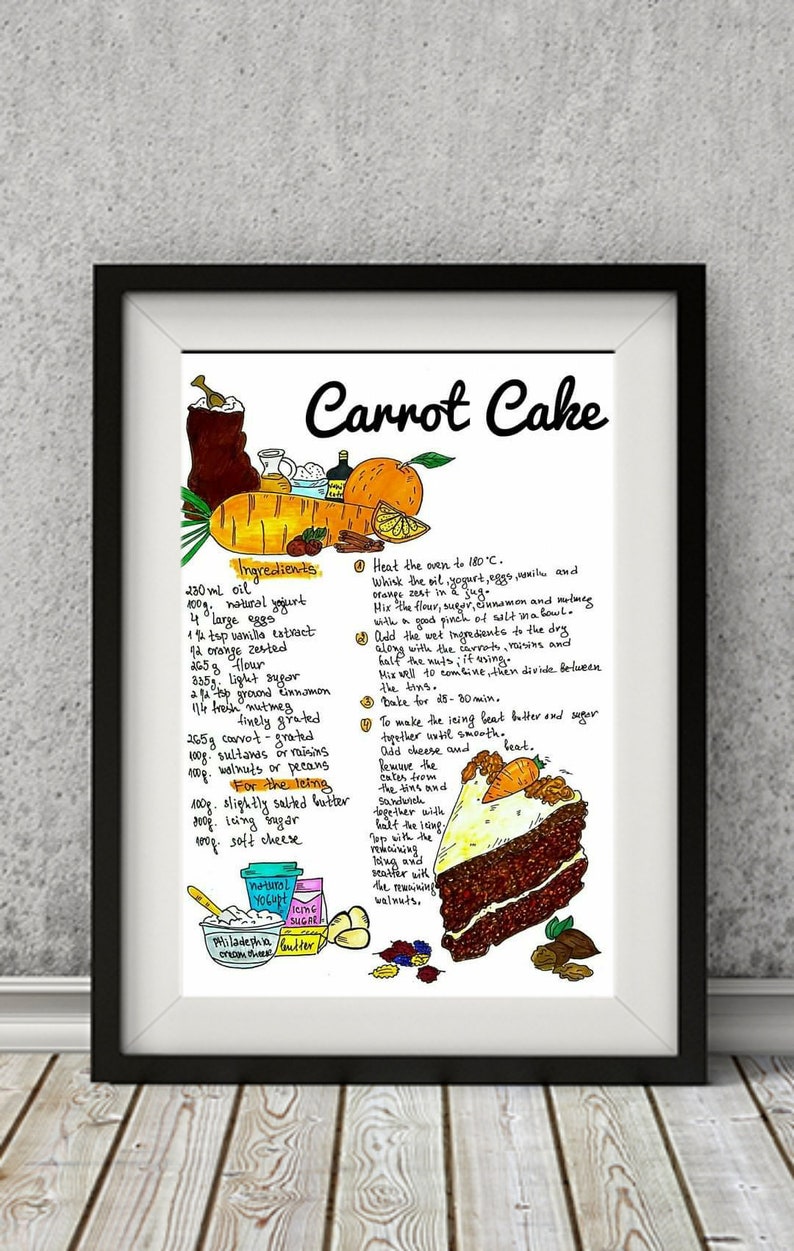 Carrot Cake
Ingredients
230 ml oil
100g. natural yogurt
4 large eggs
1 1/2 tsp vanilla extract
1/2 orange zested
265g flour
335g. light sugar
2 1/2 tsp ground cinnamon
1/4 fresh nutmeg
finely grated
265g carrot - grated
100g. sultanas or raisins
100g. walnuts or pecans
For the Icing
100g. slightly salted butter
300g. icing sugar
100g. soft cheese
1 Heat the oven to 180°C.
Whisk the oil, yogurt, eggs, vanilla and
orange zest in a jug.
Mix the flour, sugar, cinnamon and nutmeg
with a good pinch of salt in a bowl.
2 Add the wet ingredients to the dry
along with the carrots, raisins and
half the nuts, if using.
Mix well to combine, then divide between
the tins.
3 Bake for 25-30 min.
4 To make the icing beat butter and sugar
together until smooth.
Add cheese and beat.
Remove the
cakes from
the tins and
sandwich
together with
half the icing.
Top with the
remaining
icing and
scatter with
the remaining
walnuts.
natural
yogurt
ICING
SUGAR
Philadephia
cream cheese
butter